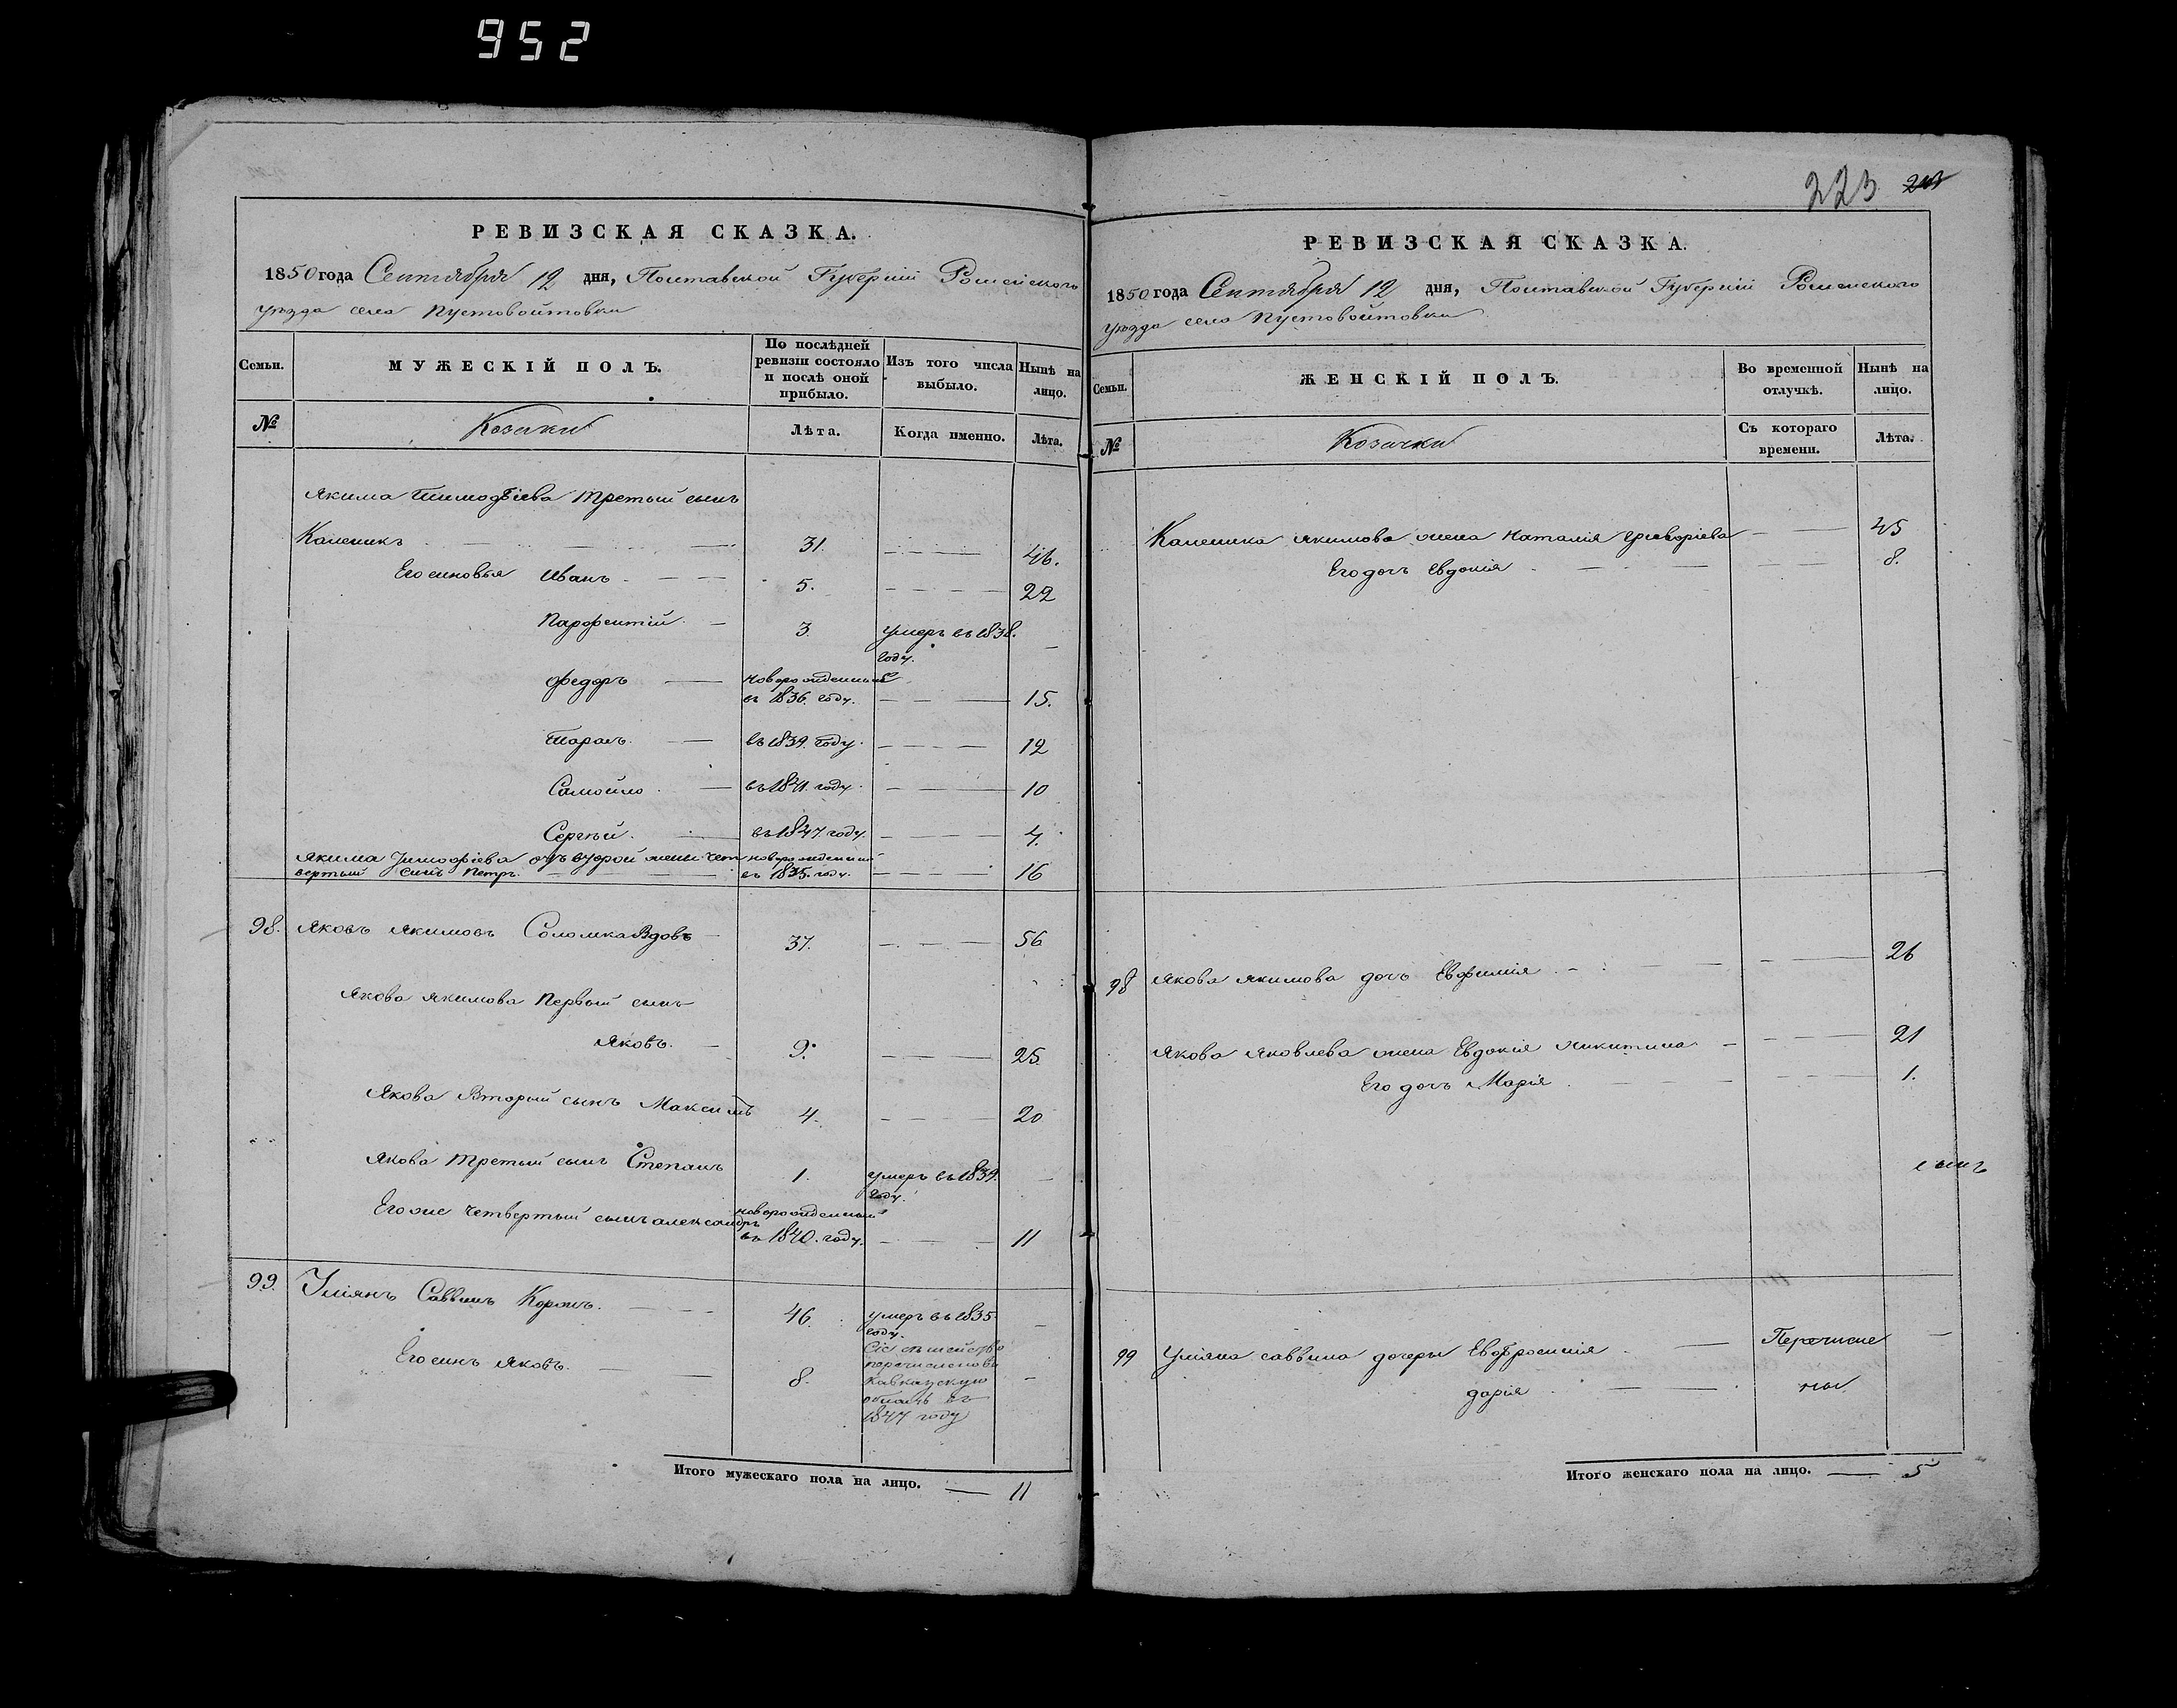 952
РЕВИЗСКАЯ СКАЗКА.
1850 года Сентября 12 дня, Полтавской Губернии Роменского
уезда села Пустовойтовки
Семьи.
МУЖЕСКІЙ ПОЛЪ.
По послѣдней ревизіи состояло и послѣ оной прибыло.
Изъ того числа выбыло.
Нынѣ на лицо.
№
Козаки
Лѣта.
Когда именно.
Лѣта.
Якима Тимофіева третый сынъ
Каленикъ 31. 46.
Его сыновья Иванъ 5. 22
Парфентій 3. умеръ въ 1838. году.
Федоръ новорожденный въ 1836. году. 15.
Тарасъ въ 1839. году. 12
Самойло въ 1841. году. 10
Сергѣй въ 1847. году. 4.
Якима Тимофіева отъ второй жены чет новорожденный
вертый сынъ Петръ. въ 1835. году. 16
98. Яковъ Якимовъ Соломка Вдовъ 37. 56
Якова Якимова Первый сынъ
Яковъ. 9. 25
Якова Вторый сынъ Максимъ 4. 20
Якова третый сынъ Степанъ 1. умеръ въ 1839. году.
Его же четвертый сынъ александръ новорожденный въ 1840. году. 11
99. Уліянъ Саввинъ Коржъ. 46. умеръ въ 1835. году.
Его синъ Яковъ. 8. Сіе сѣмейство перечислено въ Кавказскую область въ 1847 году
Итого мужескаго пола на лицо. 11
223
РЕВИЗСКАЯ СКАЗКА.
1850 года Сентября 12 дня, Полтавской Губерніи Роменского
уезда села Пустовойтовки
Семьи.
ЖЕНСКІЙ ПОЛЪ.
Во временной отлучкѣ.
Нынѣ на лицо.
№
Козачки
Съ котораго времени.
Лѣта.
Каленика Якимова жена Наталія Григоріева 45
Его дочь Евдокія 8.
98 Якова Якимова дочь Евфимія 26
Якова Яковлева жена Евдокія Никитина 21
Его дочь Марія 1.
сынъ
99 Уліяна саввина дочеры Евфросинія Перечисле
дарія ны
Итого женскаго пола на лицо. 5